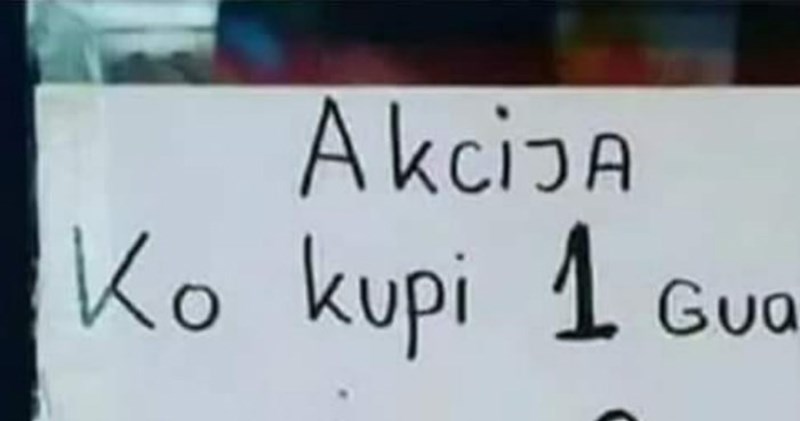 Akcija
Ko kupi 1 Gua